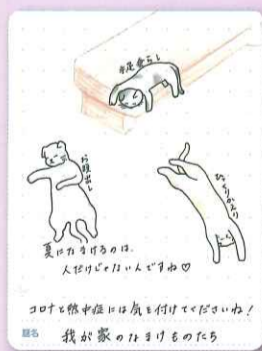 お顔出し
ひっくりかえり
夏になまけるのは、
人だけじゃないんですね♡
コロナと熱中症には気を付けてくださいね!
題名 我が家のなまけものたち